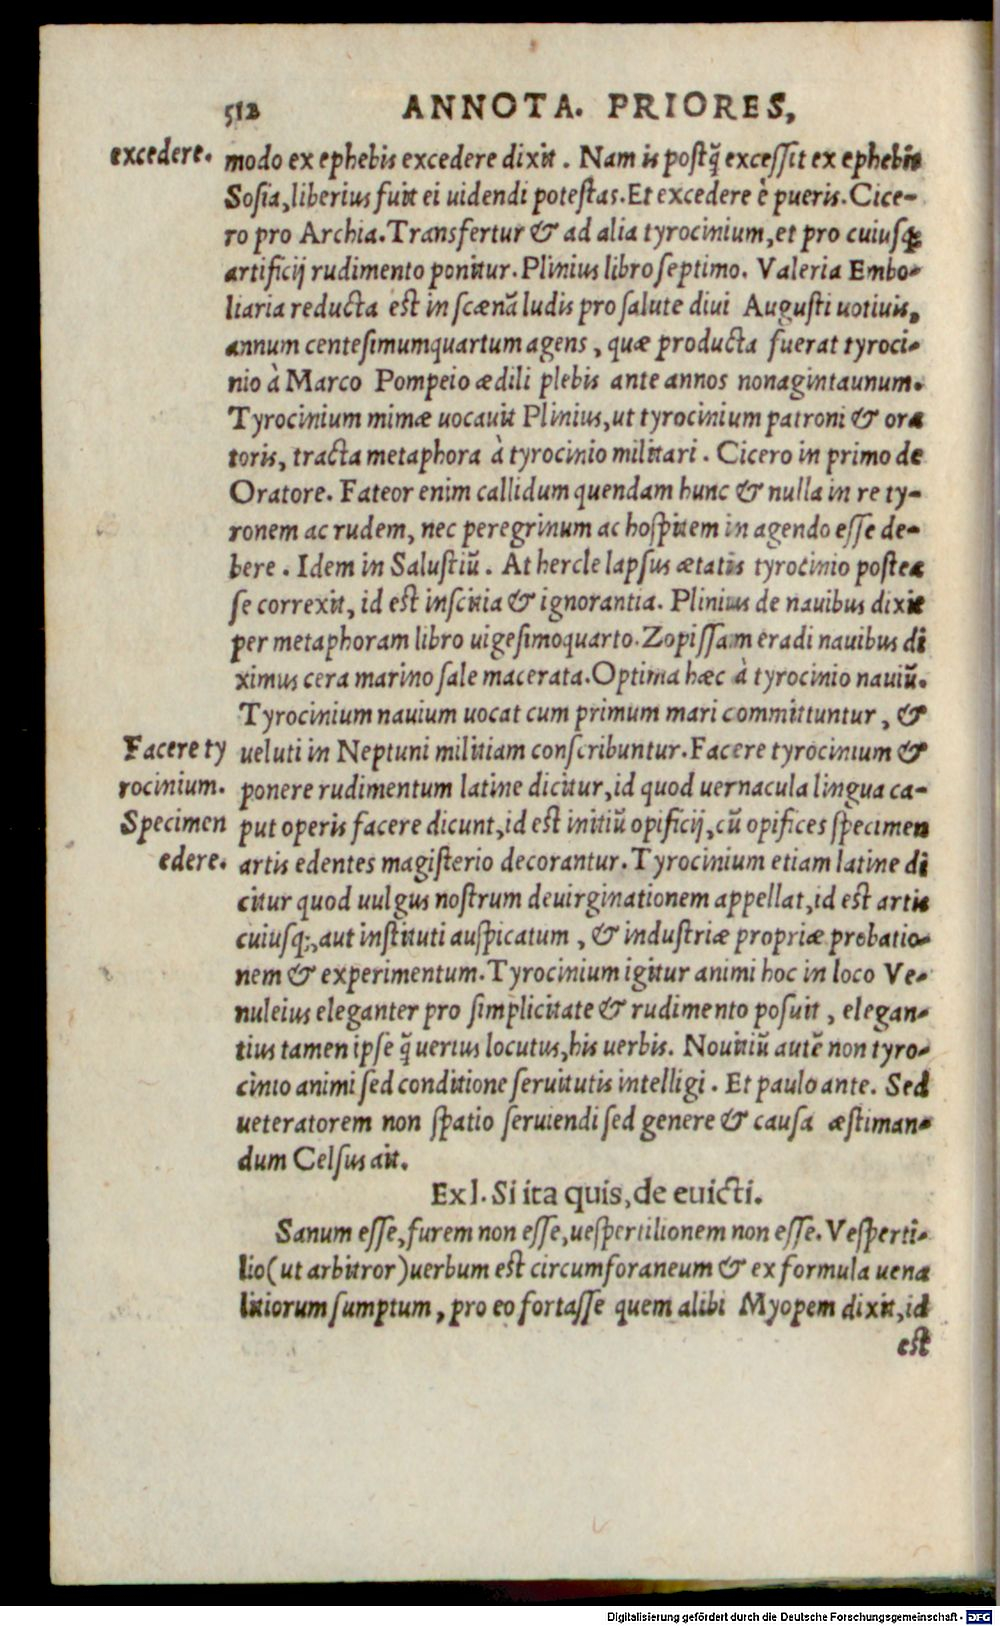 512 ANNOTA. PRIORES,
excedere. modo ex ephebis excedere dixit. Nam is postq̃ excessit ex ephebis
Sosia, liberius fuit ei uidendi potestas. Et excedere è pueris. Cice-
ro pro Archia. Transfertur & ad alia tyrocinium, et pro cuiusq;
artificij rudimento ponitur. Plinius libro septimo. Valeria Embo-
liaria reducta est in scænã ludis pro salute diui Augusti uotiuis,
annum centesimumquartum agens, quæ producta fuerat tyroci-
nio à Marco Pompeio ædili plebis ante annos nonagintaunum.
Tyrocinium mimæ uocauit Plinius, ut tyrocinium patroni & ora
toris, tracta metaphora à tyrocinio militari. Cicero in primo de
Oratore. Fateor enim callidum quendam hunc & nulla in re ty-
ronem ac rudem, nec peregrinum ac hospitem in agendo esse de-
bere. Idem in Salustiũ. At hercle lapsus ætatis tyrocinio postea
se correxit, id est inscitia & ignorantia. Plinius de nauibus dixit
per metaphoram libro uigesimoquarto. Zopissam eradi nauibus di
ximus cera marino sale macerata. Optima hæc à tyrocinio nauiũ.
Tyrocinium nauium uocat cum primum mari committuntur, &
Facere ty ueluti in Neptuni militiam conscribuntur. Facere tyrocinium &
rocinium. ponere rudimentum latine dicitur, id quod uernacula lingua ca-
Specimen put operis facere dicunt, id est initiũ opificij, cũ opifices specimen
edere. artis edentes magisterio decorantur. Tyrocinium etiam latine di
citur quod uulgus nostrum deuirginationem appellat, id est artis
cuiusq;, aut instituti auspicatum, & industriæ propriæ probatio-
nem & experimentum. Tyrocinium igitur animi hoc in loco Ve-
nuleius eleganter pro simplicitate & rudimento posuit, elegan-
tius tamen ipse q̃ uerius locutus, his uerbis. Nouitiũ autẽ non tyro-
cinio animi sed conditione seruitutis intelligi. Et paulo ante. Sed
ueteratorem non spatio seruiendi sed genere & causa æstiman-
dum Celsus ait.
Ex l. Si ita quis, de euicti.
Sanum esse, furem non esse, uespertilionem non esse. Vesperti-
lio (ut arbitror) uerbum est circumforaneum & ex formula uena
litiorum sumptum, pro eo fortasse quem alibi Myopem dixit, id
est
Digitalisierung gefördert durch die Deutsche Forschungsgemeinschaft - DFG